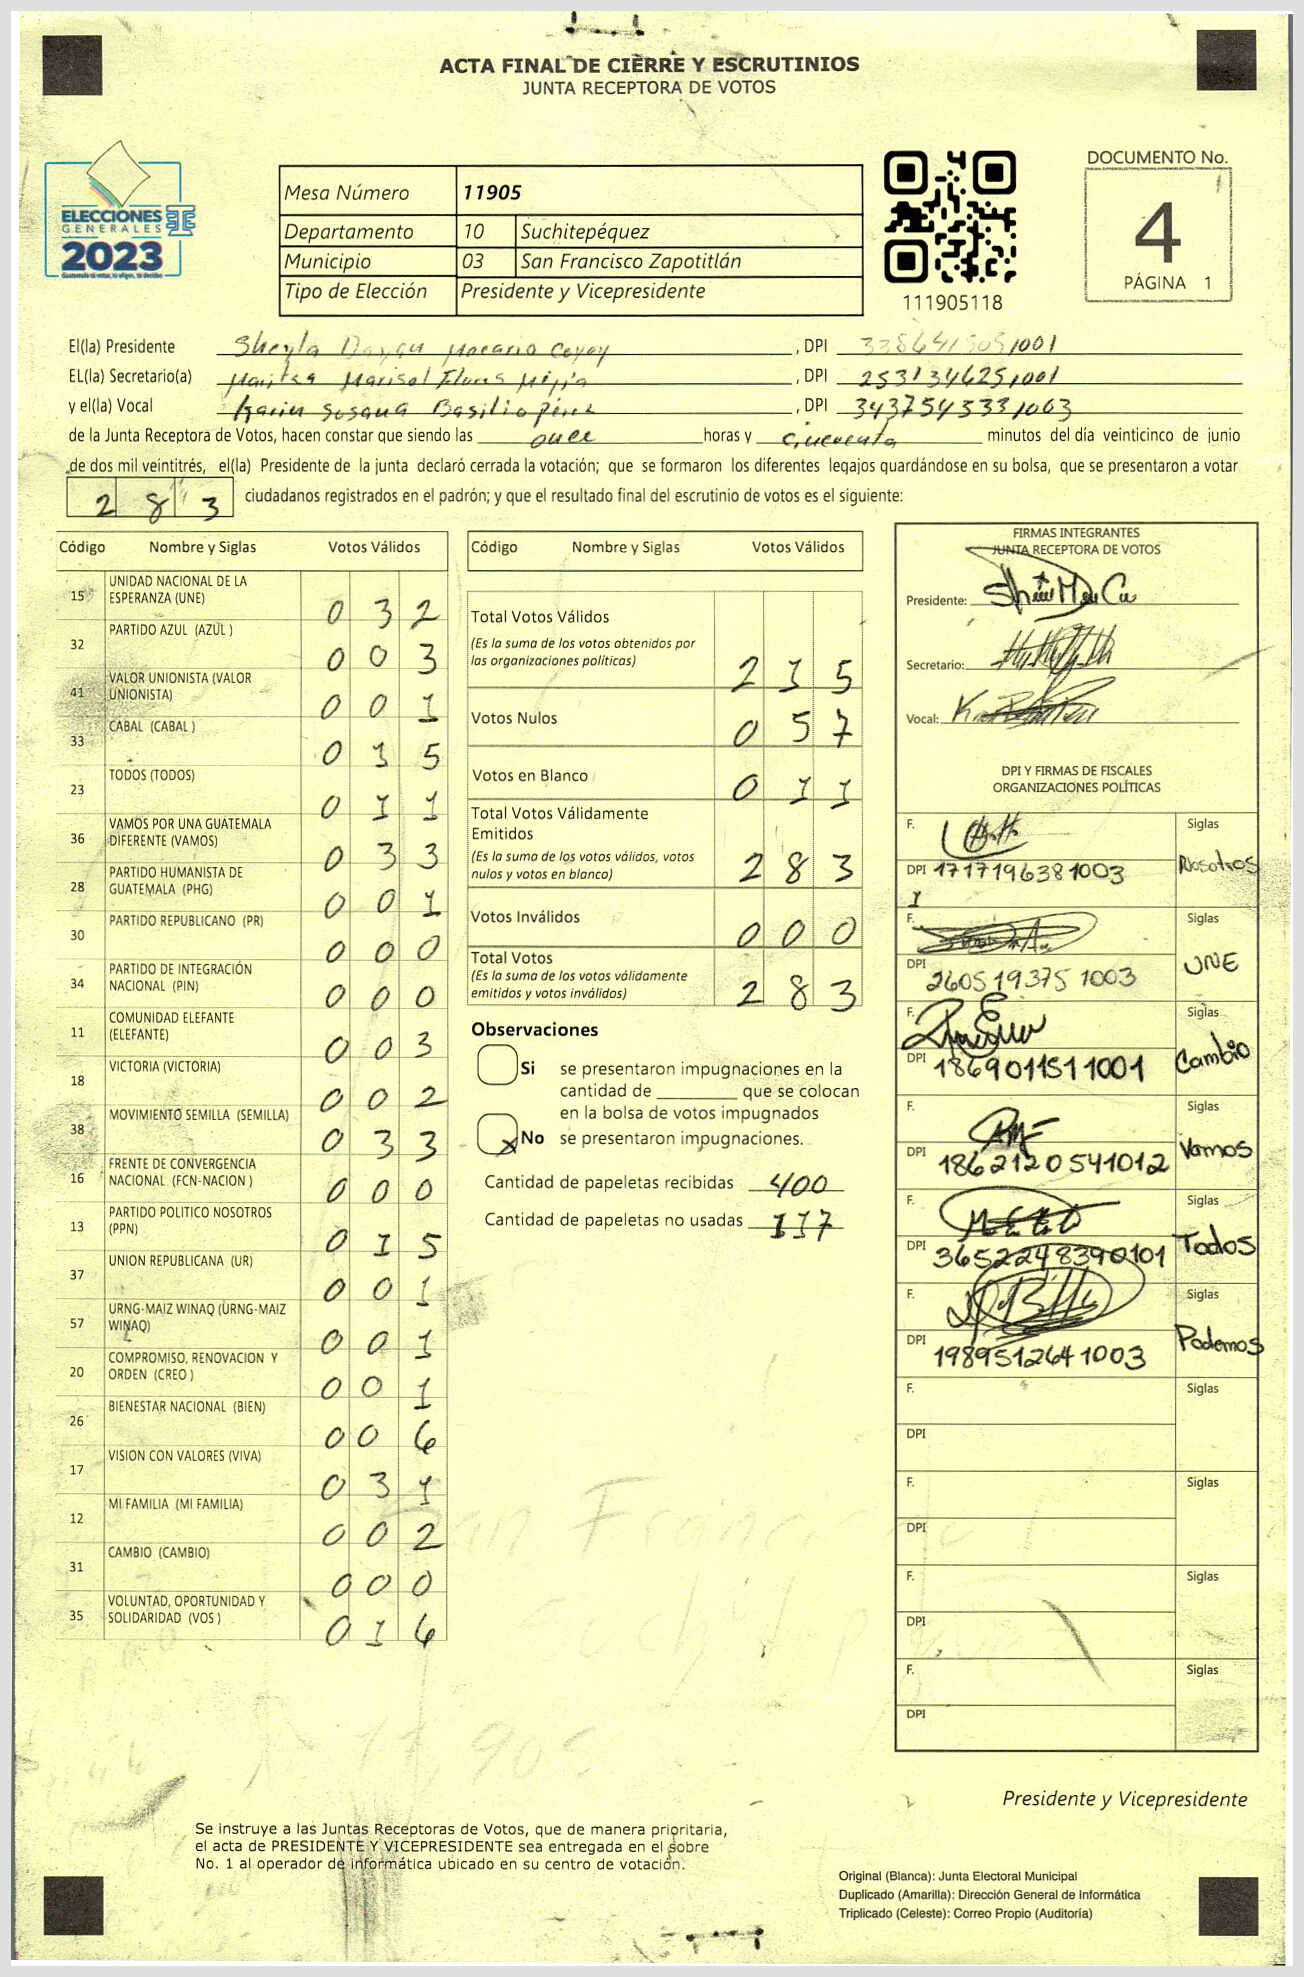 ACTA FINAL DE CIERRE Y ESCRUTINIOS
JUNTA RECEPTORA DE VOTOS
ELECCIONES
GENERALES
2023
Mesa Número 11905
Departamento 10 Suchitepéquez
Municipio 03 San Francisco Zapotitlán
Tipo de Elección Presidente y Vicepresidente
111905118
DOCUMENTO No.
4
PÁGINA 1
El(la) Presidente Sheyla Macario Coyoy , DPI
EL(la) Secretario(a) Maritza Marisol Flores Mejía , DPI 2531346251001
y el(la) Vocal Karin Susana Basilio Pérez , DPI 3437543331003
de la Junta Receptora de Votos, hacen constar que siendo las once horas y cincuenta minutos del día veinticinco de junio
de dos mil veintitrés, el(la) Presidente de la junta declaró cerrada la votación; que se formaron los diferentes legajos quardándose en su bolsa, que se presentaron a votar
283 ciudadanos registrados en el padrón; y que el resultado final del escrutinio de votos es el siguiente:
Código Nombre y Siglas Votos Válidos
15 UNIDAD NACIONAL DE LA ESPERANZA (UNE) 032
32 PARTIDO AZUL (AZUL ) 003
41 VALOR UNIONISTA (VALOR UNIONISTA) 001
33 CABAL (CABAL ) 015
23 TODOS (TODOS) 011
36 VAMOS POR UNA GUATEMALA DIFERENTE (VAMOS) 033
28 PARTIDO HUMANISTA DE GUATEMALA (PHG) 001
30 PARTIDO REPUBLICANO (PR) 000
34 PARTIDO DE INTEGRACIÓN NACIONAL (PIN) 000
11 COMUNIDAD ELEFANTE (ELEFANTE) 003
18 VICTORIA (VICTORIA) 002
38 MOVIMIENTO SEMILLA (SEMILLA) 033
16 FRENTE DE CONVERGENCIA NACIONAL (FCN-NACION ) 000
13 PARTIDO POLITICO NOSOTROS (PPN) 015
37 UNION REPUBLICANA (UR) 001
57 URNG-MAIZ WINAQ (URNG-MAIZ WINAQ) 001
20 COMPROMISO, RENOVACION Y ORDEN (CREO ) 001
26 BIENESTAR NACIONAL (BIEN) 006
17 VISION CON VALORES (VIVA) 031
12 MI FAMILIA (MI FAMILIA) 002
31 CAMBIO (CAMBIO) 000
35 VOLUNTAD, OPORTUNIDAD Y SOLIDARIDAD (VOS ) 016
Código Nombre y Siglas Votos Válidos
Total Votos Válidos
(Es la suma de los votos obtenidos por
las organizaciones políticas) 215
Votos Nulos 057
Votos en Blanco 011
Total Votos Válidamente
Emitidos
(Es la suma de los votos válidos, votos
nulos y votos en blanco) 283
Votos Inválidos 000
Total Votos
(Es la suma de los votos válidamente
emitidos y votos inválidos) 283
Observaciones
Si se presentaron impugnaciones en la
cantidad de ________ que se colocan
en la bolsa de votos impugnados
x No se presentaron impugnaciones.
Cantidad de papeletas recibidas 400
Cantidad de papeletas no usadas 117
FIRMAS INTEGRANTES
JUNTA RECEPTORA DE VOTOS
Presidente:
Secretario:
Vocal:
DPI Y FIRMAS DE FISCALES
ORGANIZACIONES POLÍTICAS
F. Siglas
DPI 1717196381003 Nosotros
F. Siglas
DPI 2605193751003 UNE
F. Siglas
DPI 1869011511001 Cambio
F. Siglas
DPI 1862120541012 Vamos
F. Siglas
DPI 3652248390101 Todos
F. Siglas
DPI 1989512641003 Podemos
F. Siglas
DPI
F. Siglas
DPI
F. Siglas
DPI
F. Siglas
DPI
San Francisco
11905
Presidente y Vicepresidente
Se instruye a las Juntas Receptoras de Votos, que de manera prioritaria,
el acta de PRESIDENTE Y VICEPRESIDENTE sea entregada en el sobre
No. 1 al operador de informática ubicado en su centro de votación.
Original (Blanca): Junta Electoral Municipal
Duplicado (Amarilla): Dirección General de Informática
Triplicado (Celeste): Correo Propio (Auditoría)